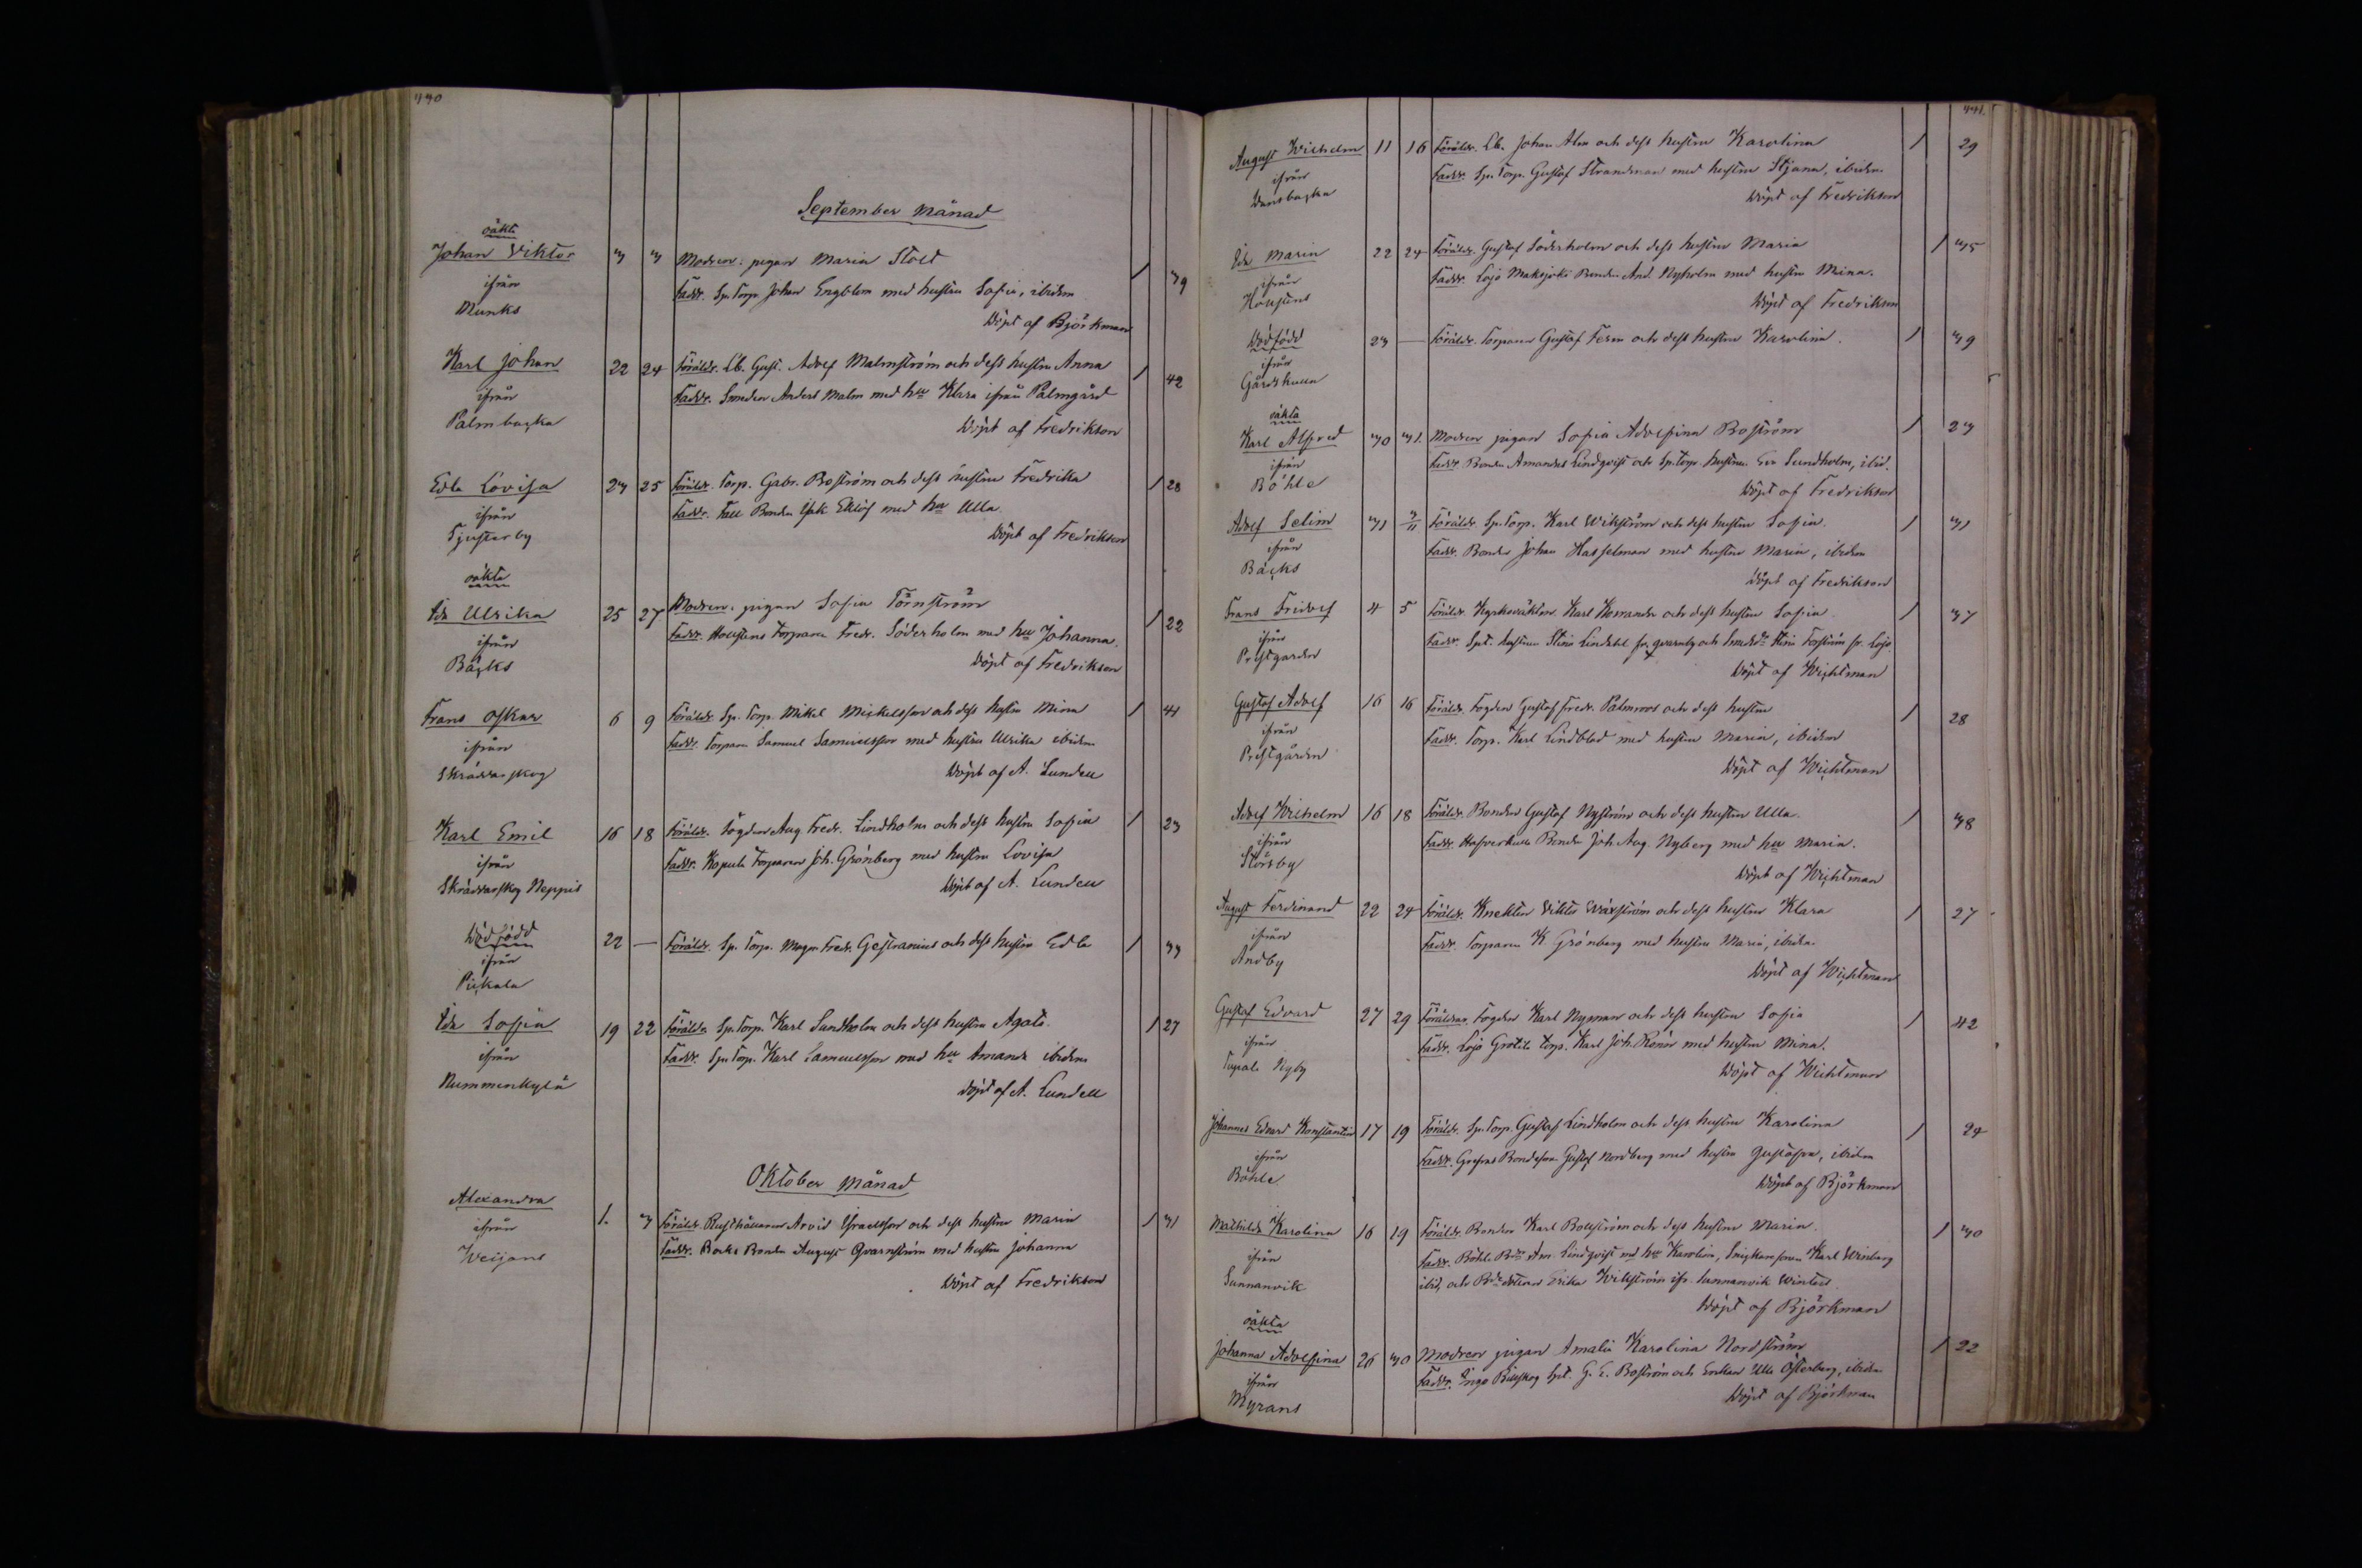 340
September Månad
oäkta
Johan Viktor 3 3 Modren: pigan Maria Stolt / 39
ifrån Faddr. Sp. Torp. Johan Engblom med hustru Sofia, ibidem
Munks Döpt af Björkman
Karl Johan 22 24 Föräldr. Lb. Gust. Adolf Malmström och dess hustru Anna / 42
ifrån Faddr. Smeden Anders Malm med hu Klara ifrån Palmgård
Palmbacka Döpt af Fredrikson
Edla Lovisa 23 25 Föräldr. Torp. Gabr. Boström och dess hustru Fredrika / 28
ifrån Faddr. Bonden Isak Eklöf med hu Ulla
Tjusterby Döpt af Fredrikson
oäkta
Ida Ulrika 25 27 Modren: pigan Sofia Törnström / 22
ifrån Faddr. Torparen Fredr. Söderholm med hu Johanna.
Bäcks Döpt af Fredrikson
Frans Oskar 6 9 Föräldr. Sp. Torp. Mikel Mickelsson och dess hustru Mina / 41
ifrån Faddr. Torparen Samuel Samuelsson med hustru Ulrika ibidem
Skräddarskog Döpt af A. Lundell
Karl Emil 16 18 Föräldr. Fogden Aug. Fredr. Lindholm och dess hustru Sofia / 23
ifrån Faddr. Torparen Joh. Grönberg med hustru Lovisa
Skräddarskog Neppis Döpt af A. Lundell
Dödfödd 22 — Föräldr. Sp. Torp. Magn. Fredr. Gestranius och dess hustru Edla / 33
ifrån
Pickala
Ida Sofia 19 22 Föräldr. Sp. Torp. Karl Sundholm och dess hustru Agata. / 27
ifrån Faddr. Sp. Torp. Karl Samuelsson med hu Amanda ibidem
Nummenkylä Döpt af A. Lundell
Oktober Månad
Alexandra 1. 3 Föräldr. Rusthållaren Arvid Israelsson och dess hustru Maria / 31
ifrån Faddr. Bonden August Qvarnström med hustru Johanna
Weijans Döpt af Fredrikson
341.
August Wilhelm 11 16 Föräldr. Lb. Johan Alm och dess hustru Karolina / 29
ifrån Faddr. Sp. Torp. Gustaf Strandman med hustru Stjana, ibidem
Döpt af Fredrikson
Ida Maria 22 24 Föräldr. Gustaf Söderholm och dess hustru Maria / 35
ifrån Faddr. Lojo Maksjoki Bonden And. Nyholm med hustru Mina.
Döpt af Fredrikson
Dödfödd 23 — Föräldr. Torparen Gustaf Ferm och dess hustru Karolina. / 39
ifrån
Gårdskulla
oäkta
Karl Alfred 30 31. Modren pigan Sofia Adolfina Boström / 23
ifrån Faddr. Bonden Amandus Lindqvist och Sp. Torp. hustrun Eva Sundholm, ibid.
Böhle Döpt af Fredrikson
Adolf Selim 31 3/11 Föräldr. Sp. Torp. Karl Wikström och dess hustru Sofia. / 31
ifrån Faddr. Bonden Johan Hasselman med hustru Maria, ibidem
Bäcks Döpt af Fredrikson
Frans Fridolf 4 5 Föräldr. Kyrkoväktaren Karl och dess hustru Sofia / 37
ifrån Faddr. Spt. hustrun Stina Lindstål fr. Qvarnby och Forström fr. Lojo
Prestgården Döpt af Wichtman
Gustaf Adolf 16 16 Föräldr. Fogden Gustaf Fredr. Palmroos och dess hustru / 28
ifrån Faddr. Torp. Karl Lindblad med hustru Maria, ibidem
Prestgården Döpt af Wichtman
Adolf Wilhelm 16 18 Föräldr. Bonden Gustaf Nyström och dess hustru Ulla. / 38
ifrån Faddr. Bonden Joh. Aug. Nyberg med hu Maria.
Störsby Döpt af Wichtman
August Ferdinand 22 24 Föräldr. Knekten Viktor Wäxström och dess hustru Klara / 27
ifrån Faddr. Torparen K. Grönberg med hustru Maria, ibidem
Andby Döpt af Wichtman
Gustaf Edvard 27 29 Föräldrar. Fogden Karl Nyman och dess hustru Sofia / 42
ifrån Faddr. Lojo Grotila Torp. Karl Joh. Renn med hustru Mina.
Nyby Döpt af Wichtman
Johannes Edvard Konstantin 17 19 Föräldr. Sp. Torp. Gustaf Lindholm och dess hustru Karolina / 24
ifrån Faddr. Bondeson Gustaf Nordberg med hustru Gustafva, ibidem
Böhle Döpt af Björkman
Mathilda Karolina 16 19 Föräldr. Bonden Karl Bollström och dess hustru Maria. / 30
ifrån Faddr. Böhle Bdn Am. Lindqvist med hu Karolina, Karl Winberg
Sunnanvik ibid, och Erika Willström ifr. Sunnanvik Winters
Döpt af Björkman
oäkta
Johanna Adolfina 26 30 Modren pigan Amalia Karolina Nordström / 22
ifrån Faddr. Ingo Billskog Spt. G. E. Boström och Enkan Ulla Österberg, ibidem
Myrans Döpt af Björkman